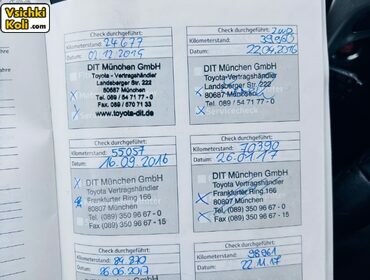 Vsichki
Koli.com
Check durchgeführt:
Kilometerstand: 24677
Datum: 02.12.2015
DIT München GmbH
Toyota - Vertragshändler
Landsberger Str.
80687 München
Tel. 089 / 54 71 77 - 0
Fax 089 / 570 71 33
www.toyota-dit.de
Check durchgeführt:
Kilometerstand: 39.960
Datum: 22.04.2016
DIT München GmbH
Toyota-Vertragshändler
Landsberger Str.
80687 München
Tel. 089 / 54 71 77-0
Check durchgeführt:
Kilometerstand: 55057
Datum: 16.09.2016
DIT München GmbH
Toyota Vertragshändler
Frankfurter Ring 166
80807 München
Tel. (089) 350 96 67 - 0
Fax (089) 350 96 67 - 15
Check durchgeführt:
Kilometerstand: 70390
Datum: 26.01.17
DIT München GmbH
Toyota Vertragshändler
Frankfurter Ring 166
80807 München
Tel. (089) 350 96 67 - 0
Fax (089) 350 96 67 - 15
Check durchgeführt:
Kilometerstand: 84 870
Datum: 26.06.2017
Check durchgeführt:
Kilometerstand: 98961
Datum: 22.11.17